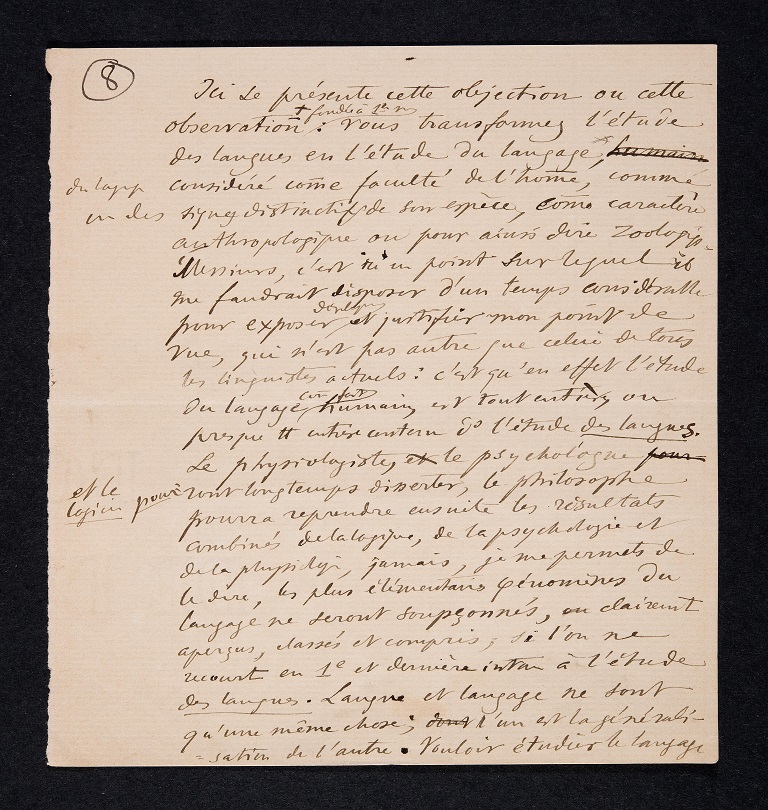 8
Ici se présente cette objection ou cette
fondée à
observation : Vous transformez l'étude
des langues en l'étude du langage, humain
du langage considéré come faculté de l'home, comme
un des signes distinctifs de son espèce, como caractère
anthropologique ou pour ainsi dire zoologiq-
Messieurs, c'est ici un point sur lequel il
me faudrait disposer d'un temps considérable
développer
pour exposer et justifier mon point de
vue, qui n'est pas autre que celui de tous
les linguistes actuels : c'est qu'en effet l'étude
du langage humain est tout entière, ou
presque tt entière contenu ds l'étude des langues.
Le physiologiste, et le psychologue pour
et le
logicien pourront longtemps disserter, le philosophe
pourra reprendre ensuite les résultats
combinés de la logique, de la psychologie et
de la physiologie, jamais, je me permets de
le dire, les plus élémentaires phénomènes du
langage ne seront soupçonnés, ou clairement
aperçus, classés et compris, si l'on ne
recourt en 1e et dernière instan à l'étude
des langues. Langue et langage ne sont
qu'une même chose ; dont l'un est la générali-
-sation de l'autre. Vouloir étudier le langage